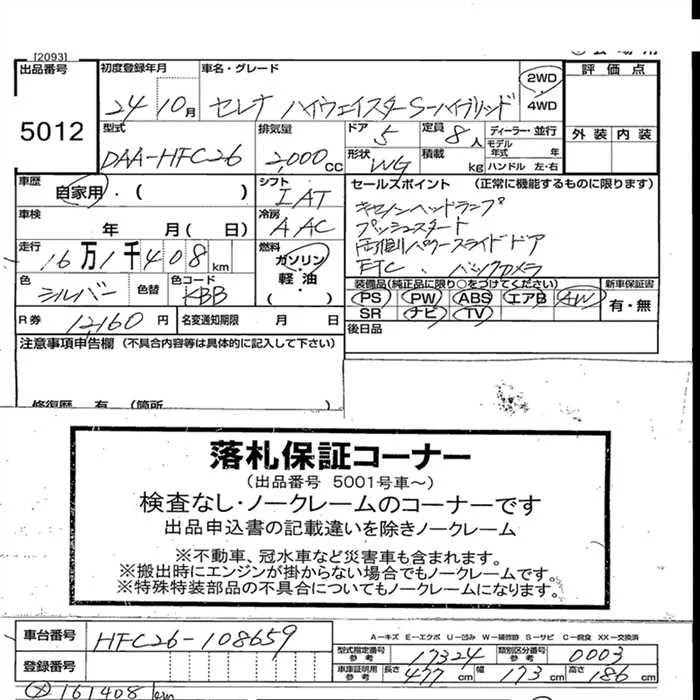 [2093]
出品番号
5012
初度登録年月
24 10月
車名・グレード
セレナ ハイウェイスターS-ハイブリッド
2WD
4WD
評価点
外装 内装
型式
DAA-HFC26
排気量
2,000cc
ドア
5
定員
8人
形状
WG
積載
kg
ディーラー・並行
モデル年式 年
ハンドル 左・右
車歴
自家用・( )
シフト
IAT
車検
年 月( 日)
冷房
AAC
走行
16万1千408km
燃料
ガソリン・軽油
( )
色
シルバー
色替
色コード
KBB
R券
12,160円
名変通知期限 月 日
セールスポイント (正常に機能するものに限ります)
キセノンヘッドランプ
プッシュスタート
両側パワースライドドア
ETC 、 バックカメラ
装備品(純正品に限り○をつけてください)
PS PW ABS エアB AW
SR ナビ TV
新車保証書
有・無
後日品
注意事項申告欄 (不具合内容等は具体的に記入して下さい)
修復歴 有 (箇所 )
落札保証コーナー
(出品番号 5001号車～)
検査なし・ノークレームのコーナーです
出品申込書の記載違いを除きノークレーム
※不動車、冠水車など災害車も含まれます。
※搬出時にエンジンが掛からない場合でもノークレームです。
※特殊特装部品の不具合についてもノークレームになります。
車台番号
HFC26-108659
登録番号
A－キズ E－エクボ U－凹み W－補修跡 S－サビ C－腐食 XX－交換済
型式指定番号 参考
17324
類別区分番号 参考
0003
車庫証明用 参考
長さ 477 cm 幅 173 cm 高さ 186 cm
161408 km